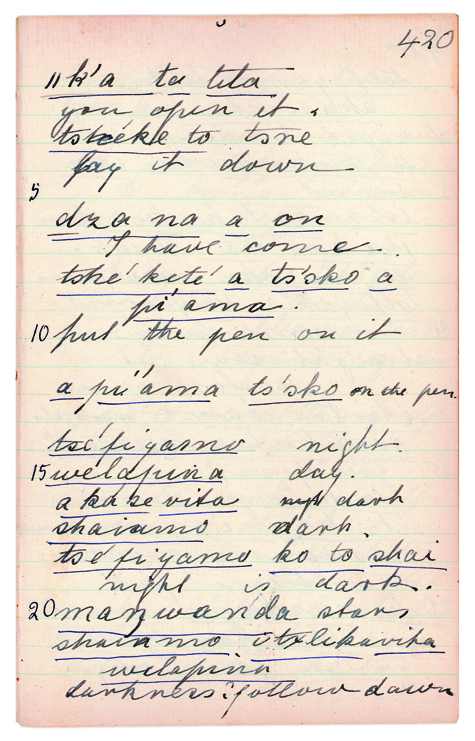 420
"k'a ta tita
you open it.
tshéke to tsne
lay it down
5
dza na a on
I have come.
tshé keté a ts'sko a
pi'ama.
10 put the pen on it
a pi'ama ts'sko on the pen.
tsé fi yamo night.
15 welapina day.
a ka se vita dark
shaiamo dark.
tse fi yamo ko to shai
night is dark.
20 manwanda stars
shaiamo itxlikavita
welapina
darkness follow dawn